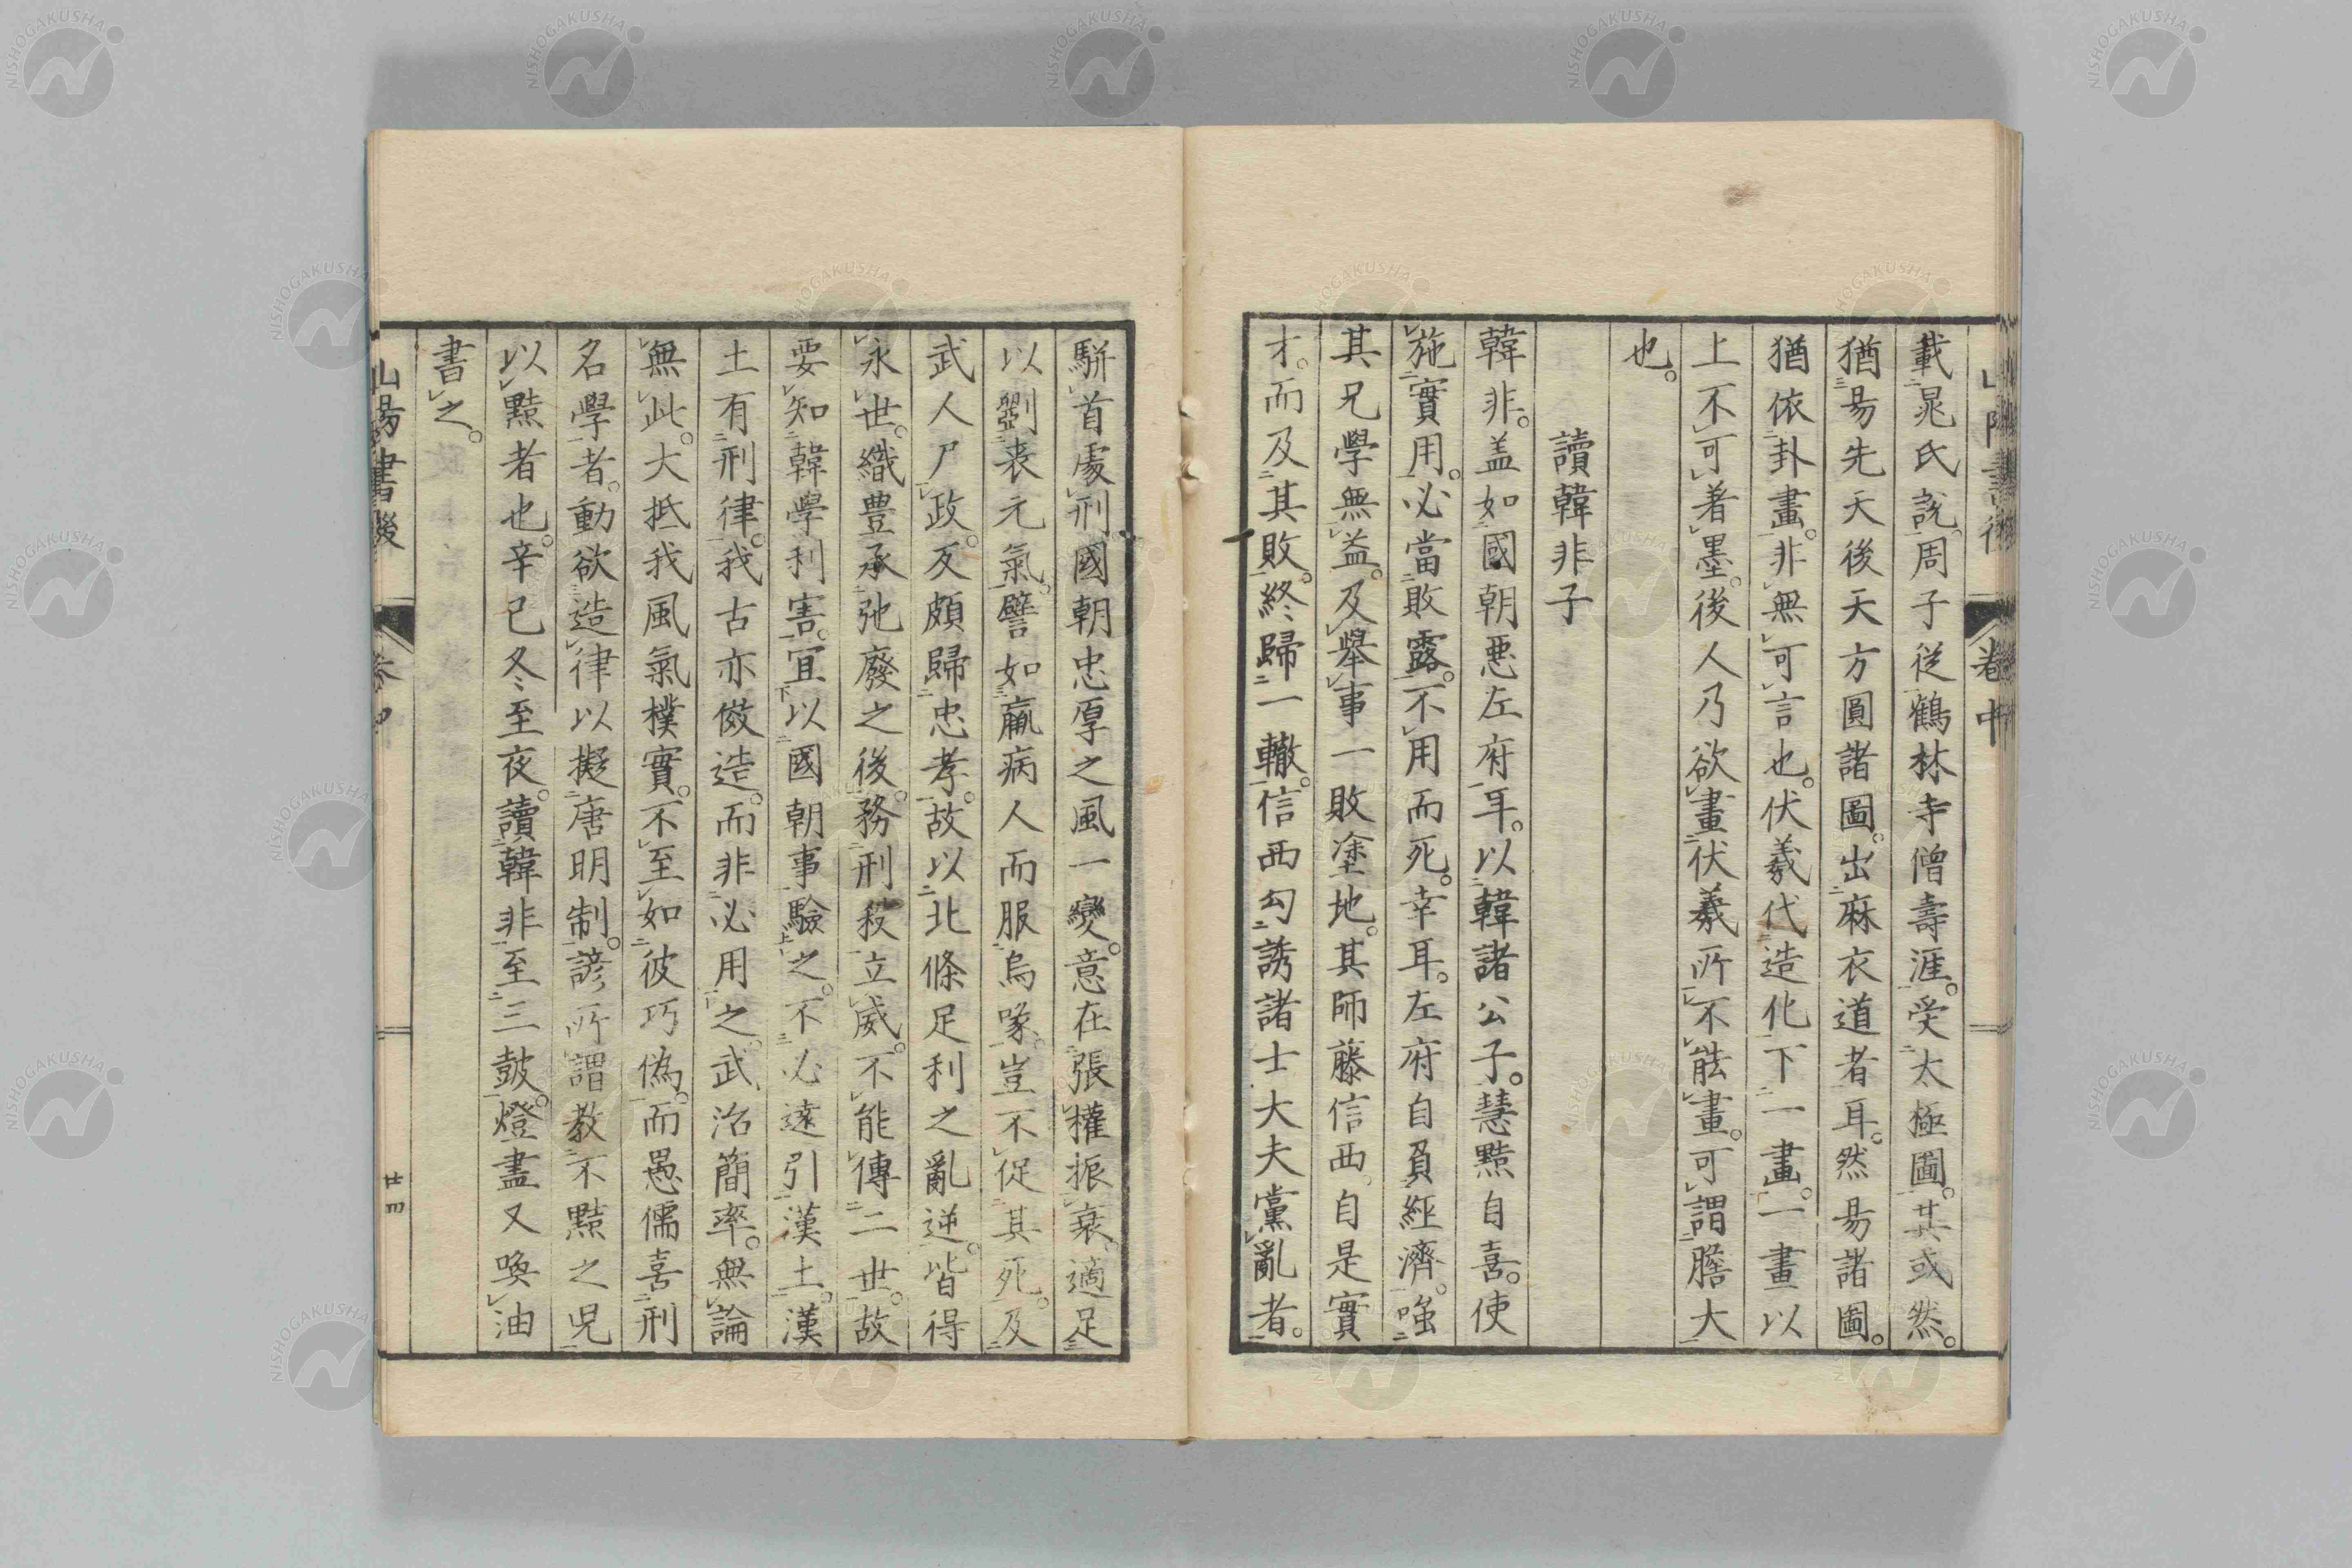 載晁氏說。周子從鶴林寺僧壽涯。受太極圖。其或然。
猶易先天後天方圓諸圖。出麻衣道者耳。然易諸圖。
猶依卦畫。非無可言也。伏羲代造化下一畫。一畫以
上不可著墨。後人乃欲畫伏羲所不能畫。可謂膽大
也。
讀韓非子
韓非。盖如國朝惡左府耳。以韓諸公子。慧黠自喜。使
施實用。必當敗露。不用而死。幸耳。左府自負經濟。嗤
其兄學無益。及舉事一敗塗地。其師藤信西。自是實
才。而及其敗。終歸一轍。信西勾誘諸士大夫黨亂者。
駢首處刑國朝忠厚之風一變。意在張權振衰。適足
以劉喪元氣。譬如羸病人而服烏喙。豈不促其死。及
武人尸政。反頗歸忠孝。故以北條足利之亂逆。皆得
永世。織豊承弛廢之後。務刑殺立威。不能傳二世。故
要知韓學利害。宜以國朝事驗之。不必遠引漢土。漢
土有刑律。我古亦倣造。而非必用之。武治簡率。無論
無此。大抵我風氣樸實。不至如彼巧偽。而愚儒喜刑
名學者。動欲造律以擬唐明制。諺所謂教不黠之児
以黠者也。辛已冬至夜。讀韓非至三鼓。燈盡又喚油
書之。
山陽書後
卷中
廿四
卷中
NISHOGAKUSHA